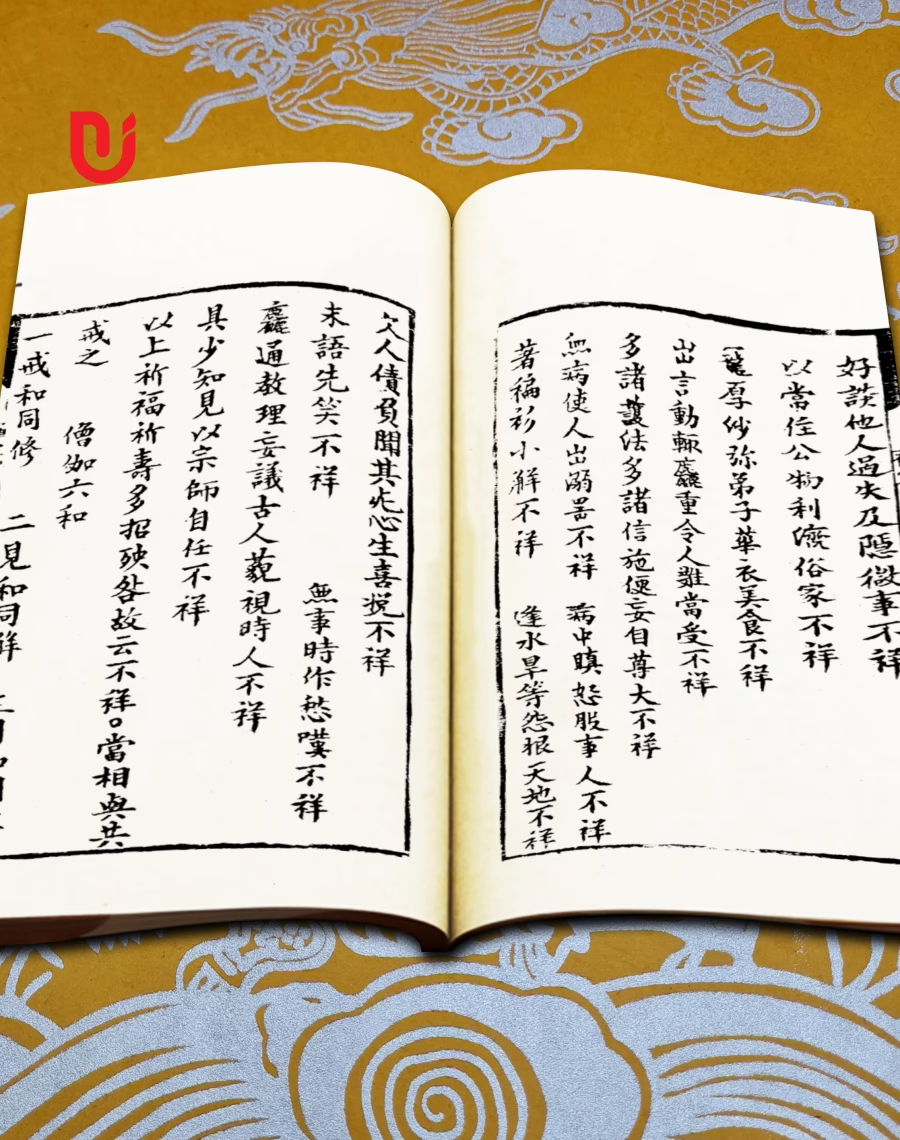 好談他人過失及隱微事不祥
以常住公物利濟俗家不祥
厚紗弥弟子華衣美食不祥
出言動輒麤重令人難當受不祥
多諸護法多諸信施便妄自尊大不祥
無病使人出溺器不祥 病中瞋怒服事人不祥
著褊衫小解不祥 逢水旱等怨恨天地不祥
欠人債負聞其死心生喜悅不祥
未語先笑不祥 無事時作愁嘆不祥
麤通教理妄議古人藐視時人不祥
具少知見以宗師自任不祥
以上祈福祈壽多招殃咎故云不祥。當相與共
戒之 僧伽六和
一戒和同修 二見和同解